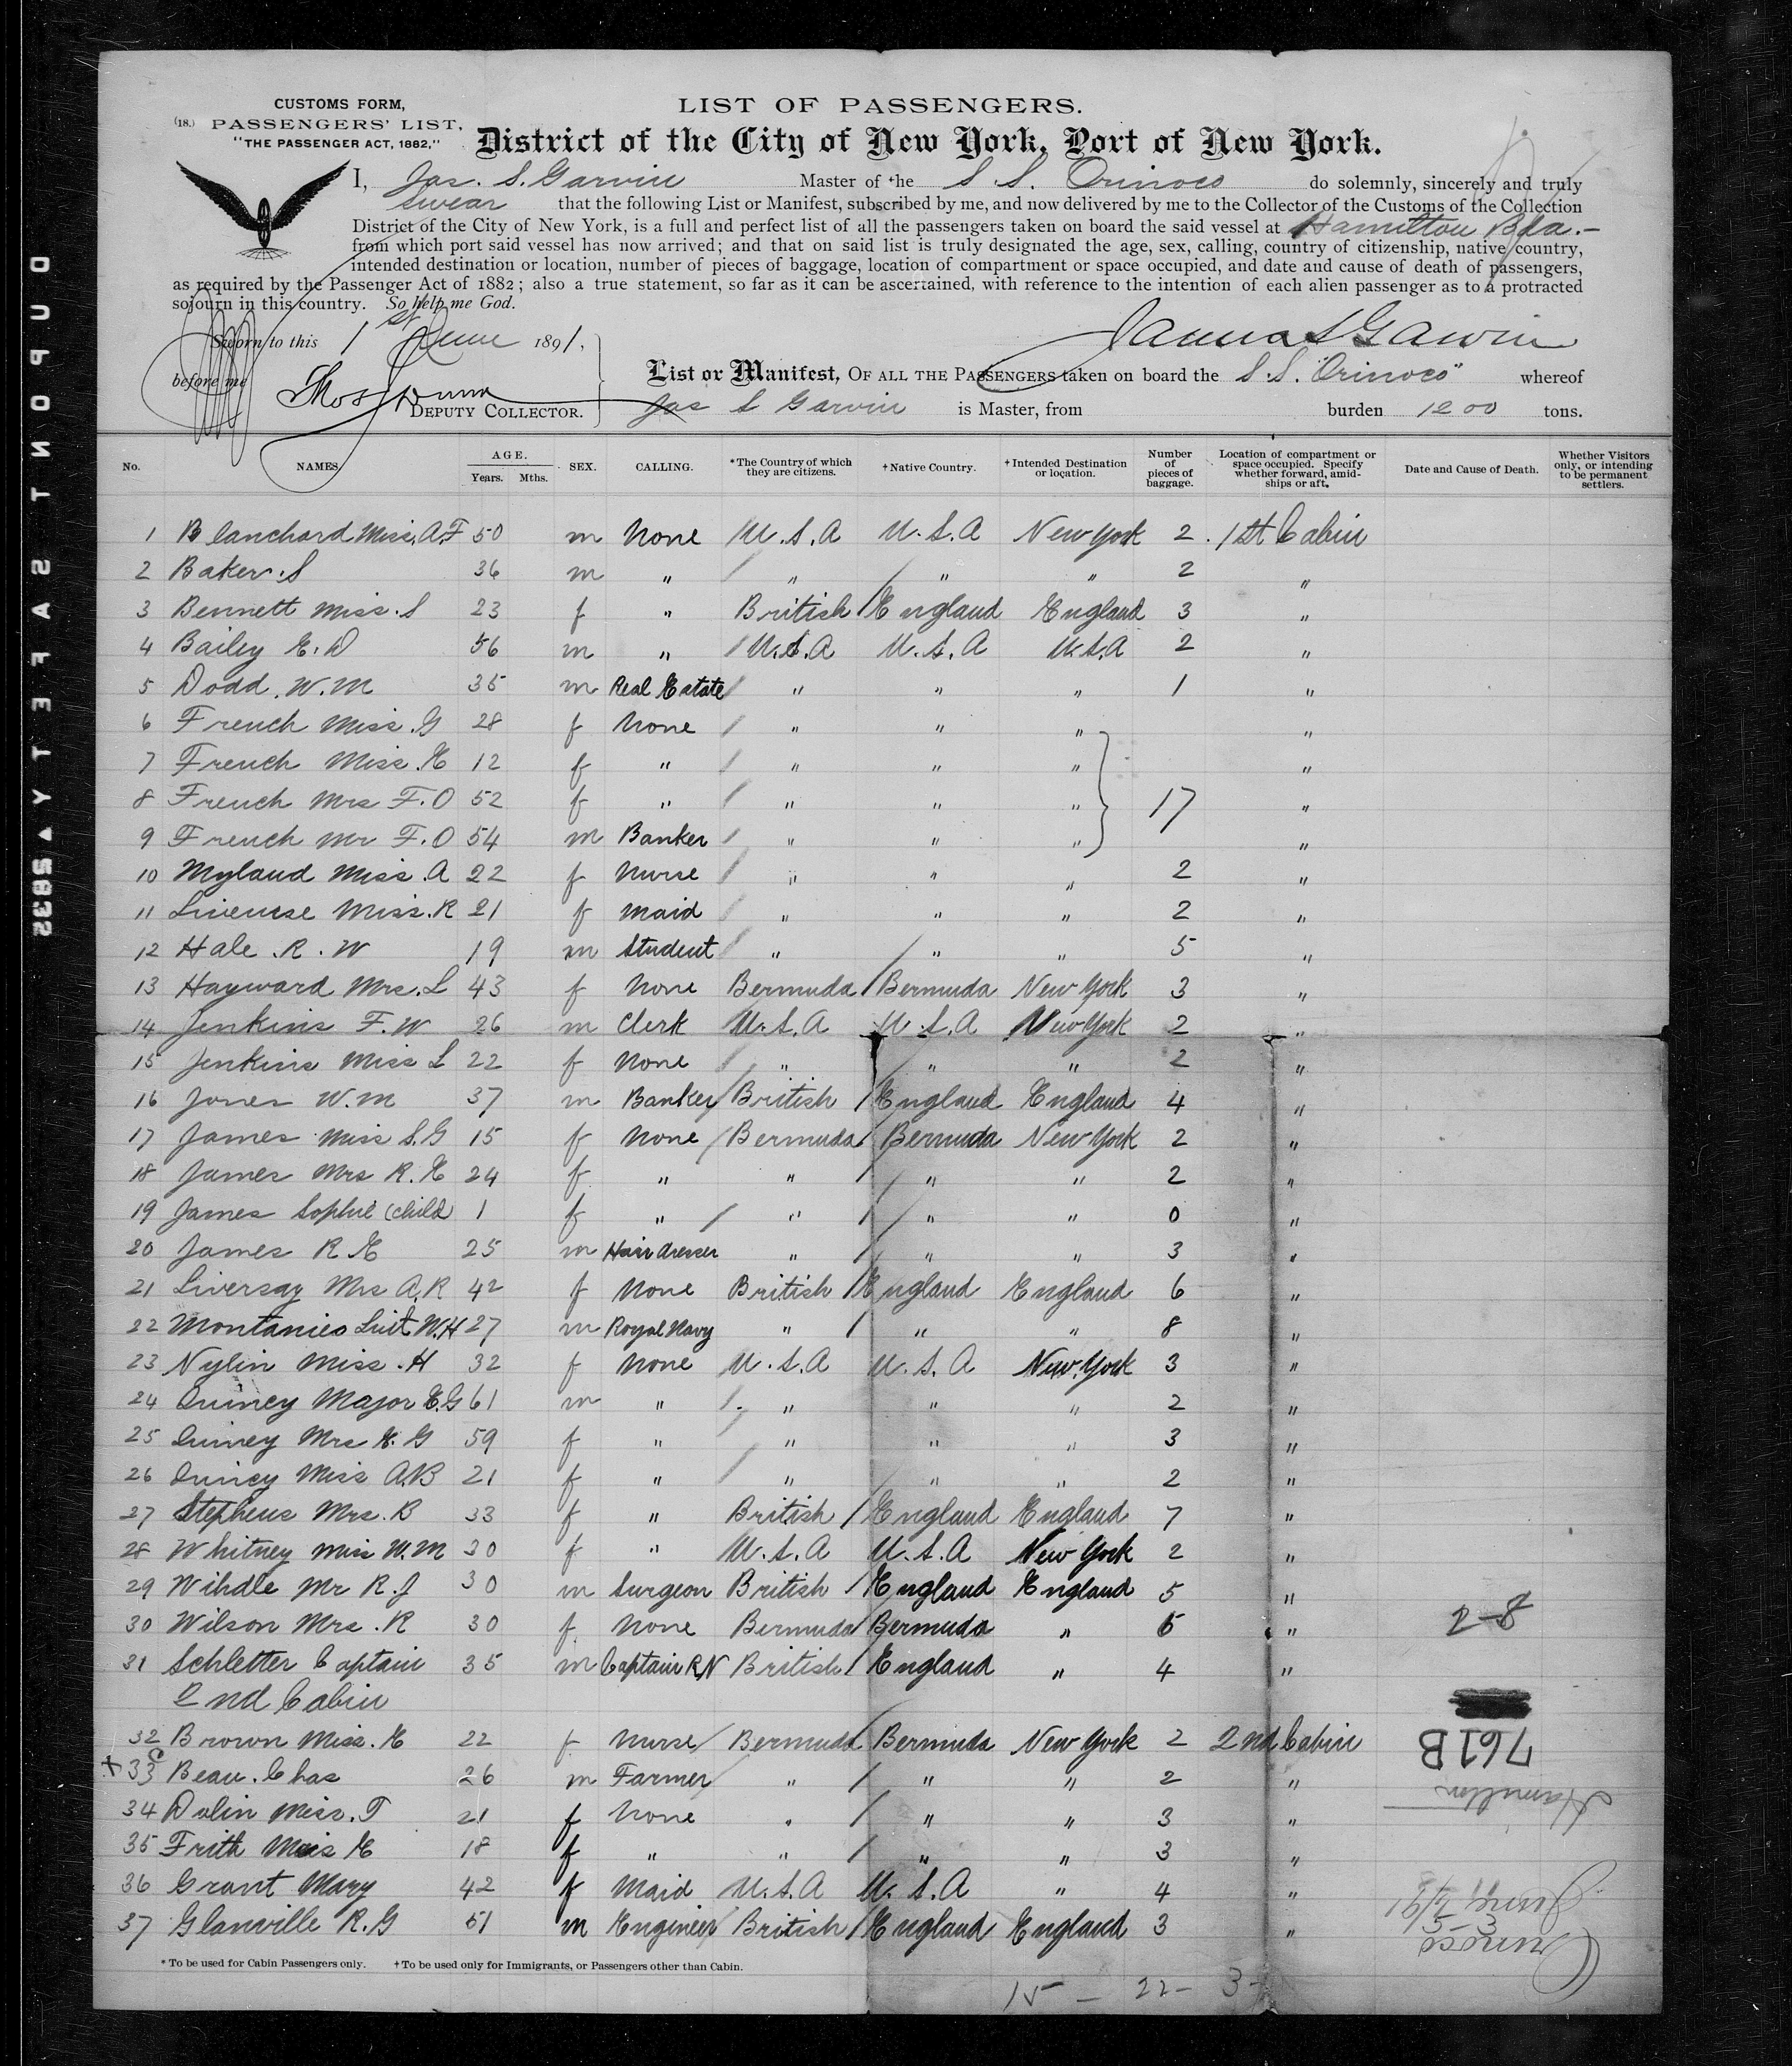 CUSTOMS FORM,
(18.) PASSENGERS' LIST,
"THE PASSENGER ACT, 1882,"
LIST OF PASSENGERS.
District of the City of New York, Port of New York.
I, Jas. S. Garvin Master of the S S. Orinoco do solemnly, sincerely and truly
swear that the following List or Manifest, subscribed by me, and now delivered by me to the Collector of the Customs of the Collection
District of the City of New York, is a full and perfect list of all the passengers taken on board the said vessel at Hamilton Bda.-
from which port said vessel has now arrived; and that on said list is truly designated the age, sex, calling, country of citizenship, native country,
intended destination or location, number of pieces of baggage, location of compartment or space occupied, and date and cause of death of passengers,
as required by the Passenger Act of 1882; also a true statement, so far as it can be ascertained, with reference to the intention of each alien passenger as to a protracted
sojourn in this country. So help me God.
Sworn to this 1st June 1891,
James S Garvin
before me
Thos Dunn
DEPUTY COLLECTOR.
List or Manifest, OF ALL THE PASSENGERS taken on board the S.S. "Orinoco" whereof
Jas S Garvin is Master, from burden 1200 tons.
No. NAMES. AGE. Years. Mths. SEX. CALLING. *The Country of which they are citizens. †Native Country. †Intended Destination or location. Number of pieces of baggage. Location of compartment or space occupied. Specify whether forward, amidships or aft. Date and Cause of Death. Whether Visitors only, or intending to be permanent settlers.
1 Blanchard Miss. A.F 50 m None U.S.A U.S.A New York 2 1st Cabin
2 Baker. S 36 m " " " " 2 "
3 Bennett Miss. S 23 f " British England England 3 "
4 Bailey E. D 56 m " U.S.A U.S.A U.S.A 2 "
5 Dodd. W. M 35 m Real Estate " " " 1 "
6 French Miss. G 28 f None " " " "
7 French Miss. E 12 f " " " " "
8 French Mrs F. O 52 f " " " " 17 "
9 French Mr F. O 54 m Banker " " " "
10 Myland Miss. A 22 f Nurse " " " 2 "
11 Miss. R 21 f Maid " " " 2 "
12 Hale. R. W 19 m Student " " " 5 "
13 Hayward Mrs. L 43 f None Bermuda Bermuda New York 3 "
14 Jenkins F. W 26 m Clerk U.S.A U.S.A New York 2 "
15 Jenkins Miss L 22 f None " " " 2 "
16 Jones W. M 37 m Banker British England England 4 "
17 James Miss S. G 15 f None Bermuda Bermuda New York 2 "
18 James Mrs R. E 24 f " " " " 2 "
19 James Sophie (child) 1 f " " " " 0 "
20 James R E 25 m Hair dresser " " " 3 "
21 Liversay Mrs A. R 42 f None British England England 6 "
22 Montanies Luit W. H 27 m Royal Navy " " " 8 "
23 Nylin Miss. H 32 f None U.S.A U.S.A New York 3 "
24 Quincy Major E. G 61 m " " " " 2 "
25 Quincy Mrs E. G 59 f " " " " 3 "
26 Quincy Miss A. B 21 f " " " " 2 "
27 Stephens Mrs. B 33 f " British England England 7 "
28 Whitney Miss W. M 30 f " U.S.A U.S.A New York 2 "
29 Wihdle Mr R. J 30 m Surgeon British England England 5 "
30 Wilson Mrs. R 30 f None Bermuda Bermuda " 5 "
31 Schletter Captain 35 m Captain R.N British England " 4 "
2nd Cabin
32 Brown Miss. E 22 f Nurse Bermuda Bermuda New York 2 2nd Cabin
x 33 Bean. Chas 26 m Farmer " " " 2 "
34 Dalin Miss. T 21 f None " " " 3 "
35 Frith Miss E 18 f " " " " 3 "
36 Grant Mary 42 f Maid U.S.A U.S.A " 4 "
37 Glanville R. G 51 m Engineer British England England 3 "
*To be used for Cabin Passengers only. †To be used only for Immigrants, or Passengers other than Cabin.
15 - 22 - 3 -
Orinoco
June 1/91
Hamilton
761B
2-8
DUPONT SAFETY